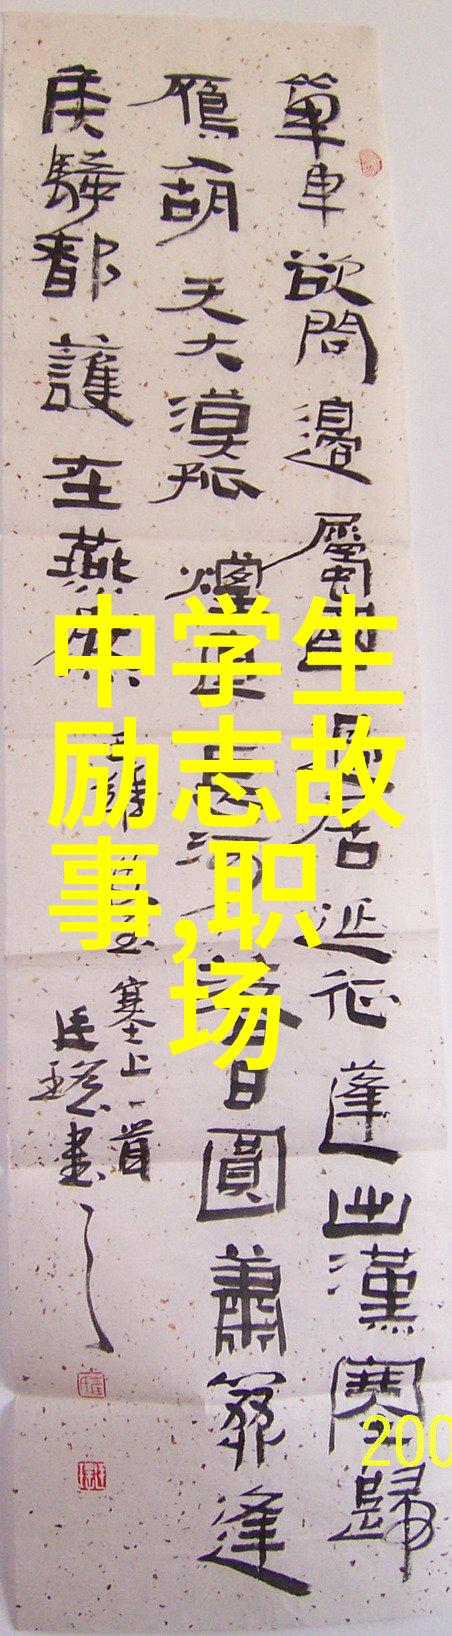 單車欲問邊屬國過居延征蓬出漢塞歸
鴈入胡天大漠孤煙直長河落日圓蕭關逢
侯騎都護在燕然
王維使至塞上一首
書
中学生
励志故
事,职
场
200